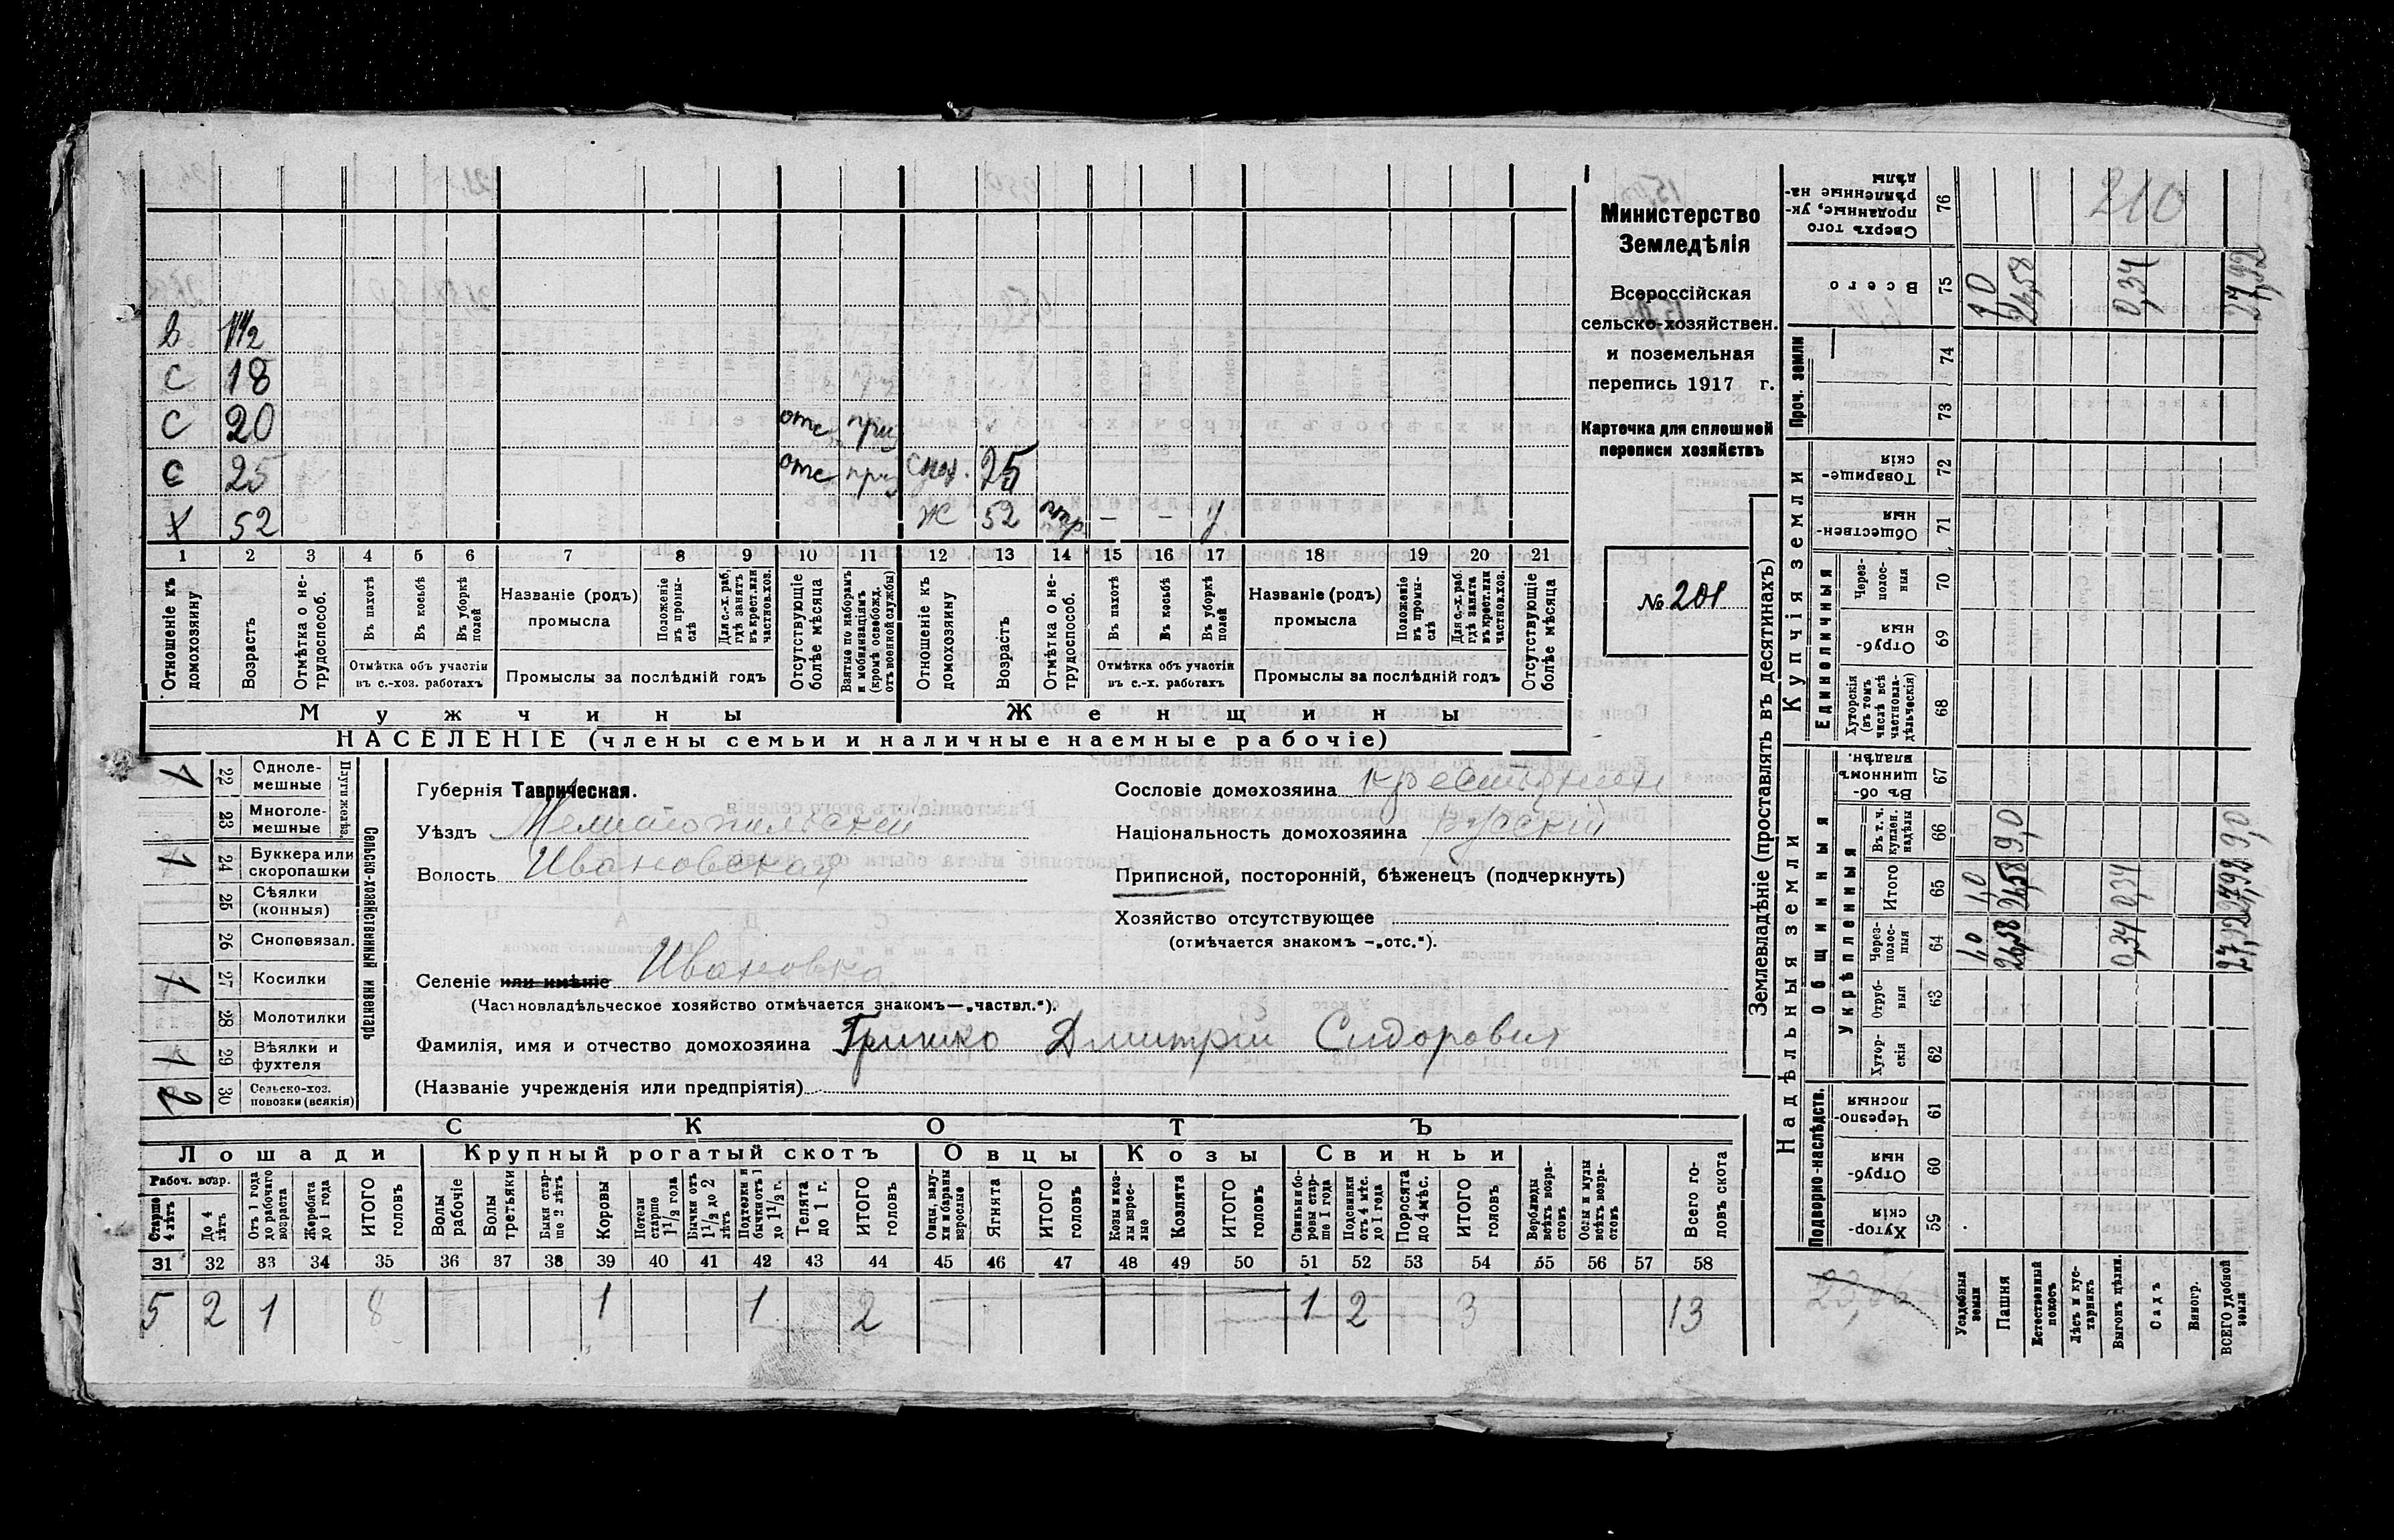 в 1 1/2
С 18
С 20 отс приз
С 25 отс приз снох. 25
Х 52 Ж 52 – – у
1 2 3 4 5 6 7 8 9 10 11 12 13 14 15 16 17 18 19 20 21
Отношеніе къ домохозяину
Возрастъ
Отмѣтка о не-
трудоспособ.
Въ пахотѣ
Въ косьбѣ
Въ уборкѣ полей
Отмѣтка объ участіи
въ с.-хоз. работахъ
Названіе (родъ)
промысла
Положеніе въ промы-
слѣ
Для с.-х. раб.
гдѣ занятъ
въ крест. или
частнов. хоз.
Промыслы за послѣдній годъ
Отсутствующіе
болѣе мѣсяца
Взятые по наборамъ
и мобилизаціямъ
(кромѣ освобожд.
отъ военной службы)
Отношеніе къ
домохозяину
Возрастъ
Отмѣтка о не-
трудоспособ.
Въ пахотѣ
Въ косьбѣ
Въ уборкѣ
полей
Отмѣтка объ участіи
въ с.-х. работахъ
Названіе (родъ)
промысла
Положеніе
въ промы-
слѣ
Для с.-х. раб.
гдѣ занята
въ крест. или
частнов. хоз.
Промыслы за послѣдній годъ
Отсутствующіе
болѣе мѣсяца
Мужчины Женщины
НАСЕЛЕНІЕ (члены семьи и наличные наемные рабочіе)
Министерство
Земледѣлія
Всероссійская
сельско-хозяйствен.
и поземельная
перепись 1917 г.
Карточка для сплошной
переписи хозяйствъ
№ 201
1 22 Одноле-
мешные
23 Многоле-
мешные
Плуги желѣз.
1 24 Буккера или
скоропашки
25 Сѣялки
(конныя)
26 Сноповязал.
1 27 Косилки
28 Молотилки
1 29 Вѣялки и
фухтеля
2 30 Сельско-хоз.
повозки (всякія)
Сельско-хозяйственный инвентарь
Губернія Таврическая.
Уѣздъ Мелитопольский
Волость Ивановская
Сословіе домохозяина крестьянин
Національность домохозяина русский
Приписной, посторонній, бѣженецъ (подчеркнуть)
Хозяйство отсутствующее
(отмѣчается знакомъ –„отс.“).
Селеніе или имѣніе Ивановка
(Частновладѣльческое хозяйство отмѣчается знакомъ—„частвл.“).
Фамилія, имя и отчество домохозяина Гришко Дмитрий Сидорович
(Названіе учрежденія или предпріятія)
СКОТЪ
Лошади Крупный рогатый скотъ Овцы Козы Свиньи
Рабоч. возр.
Старше
4 лѣтъ
До 4
лѣтъ
Отъ 1 года
до рабочаго
возраста
Жеребята
до 1 года
ИТОГО
головъ
Волы
рабочіе
Волы
третьяки
Быки стар-
ше 2 лѣтъ
Коровы
Нетели
старше
1 1/2 года
Бычки отъ
1 1/2 до 2
лѣтъ
Подтелки и
бычки отъ 1
до 1 1/2 г.
Телята
до 1 г.
ИТОГО
головъ
Овцы, валу-
хи и бараны
взрослые
Ягнята
ИТОГО
головъ
Козы и коз-
лы взрос-
лые
Козлята
ИТОГО
головъ
Свиньи и бо-
ровы стар-
ше 1 года
Подсвинки
отъ 4 мѣс.
до 1 года
Поросята
до 4 мѣс.
ИТОГО
головъ
Верблюды
всѣхъ возра-
стовъ
Ослы и мулы
всѣхъ возра-
стовъ
Всего го-
ловъ скота
31 32 33 34 35 36 37 38 39 40 41 42 43 44 45 46 47 48 49 50 51 52 53 54 55 56 57 58
5 2 1 8 1 1 2 1 2 3 13
Землевладѣніе (проставлять въ десятинахъ)
Надѣльныя земли Купчія земли Проч. земли
Подворно-наслѣдств. Общинныя Единоличныя
Укрѣпленныя
Сверхъ того
проданные, ук-
рѣпленные на-
дѣлы
76
210
Всего 75 1,0 26,58 0,34 27,92
74
73
Товарище-
скія 72
Обществен-
ныя 71
Через-
полос-
ныя 70
Отруб-
ныя 69
Хуторскія
(въ томъ
числѣ всѣ
частновла-
дѣльческія) 68
Въ об-
щинномъ
владѣн. 67
Въ т. ч.
куплен.
надѣлы 66 9,0 9,0
Итого 65 1,0 26,58 0,34 27,92
Через-
полос-
ныя 64 1,0 26,58 0,34 27,92
Отруб-
ныя 63
Хутор-
скія 62
Черезпо-
лосныя 61
Отруб-
ныя 60
Хутор-
скія 59
Усадебныя
земли
Пашня
Естественный
покосъ
Лѣсъ и кус-
тарникъ
Выгонъ цѣлин.
Садъ
Виногр.
ВСЕГО удобной
земли